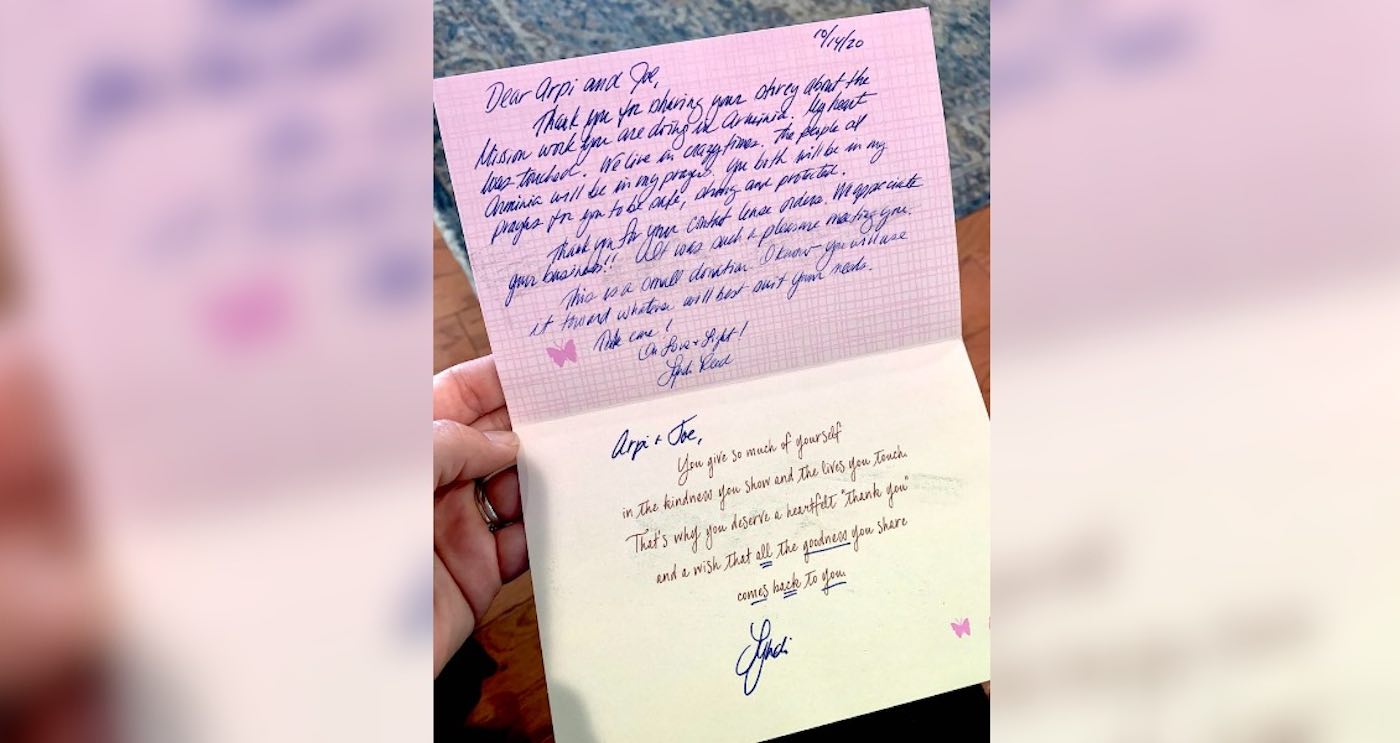 10/14/20
Dear Arpi and Joe,
Thank you for sharing your story about the
Mission work you are doing in Arminia. My heart
was touched. We live in crazy times. The people of
Arminia will be in my prayers. You both will be in my
prayers for you to be safe, strong and protected.
Thank you for your contact lense orders. We appreciate
your business!! It was such a pleasure meeting you.
This is a small donation I know you will use
it toward whatever will best suit your needs.
Take care!
In Love + Light!
Lyndi Reed
Arpi + Joe,
You give so much of yourself
in the kindness you show and the lives you touch.
That's why you deserve a heartfelt "thank you"
and a wish that all the goodness you share
comes back to you.
Lyndi